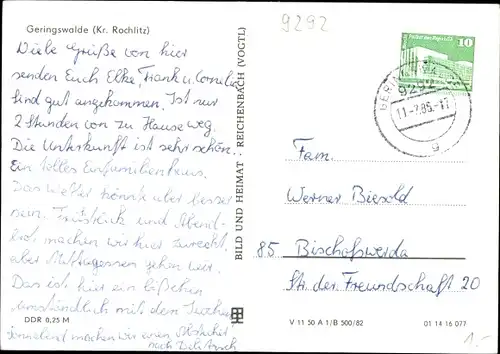 9292
Geringswalde (Kr. Rochlitz)
Viele Grüße von hier
senden Euch Elke, Frank u. Cornelia
Sind gut angekommen. Ist nur
2 Stunden von zu Hause weg.
Die Unterkunft ist sehr schön.
Ein tolles Einfamilienhaus.
Das Wetter könnte aber besser
sein. Frühstück und Abend-
brot machen wir hier zurecht,
aber Mittagessen gehen wir.
Das ist hier ein bißchen
umständlich mit dem
machen wir einen Abstecher
nach
DDR 0,25 M
BILD UND HEIMAT REICHENBACH (VOGTL)
10
9292
11.-7.85.-17
g
Fam.
Werner Biesold
85 Bischofswerda
Str. der Freundschaft 20
V 11 50 A 1/B 500/82
01 14 16 077
1.-